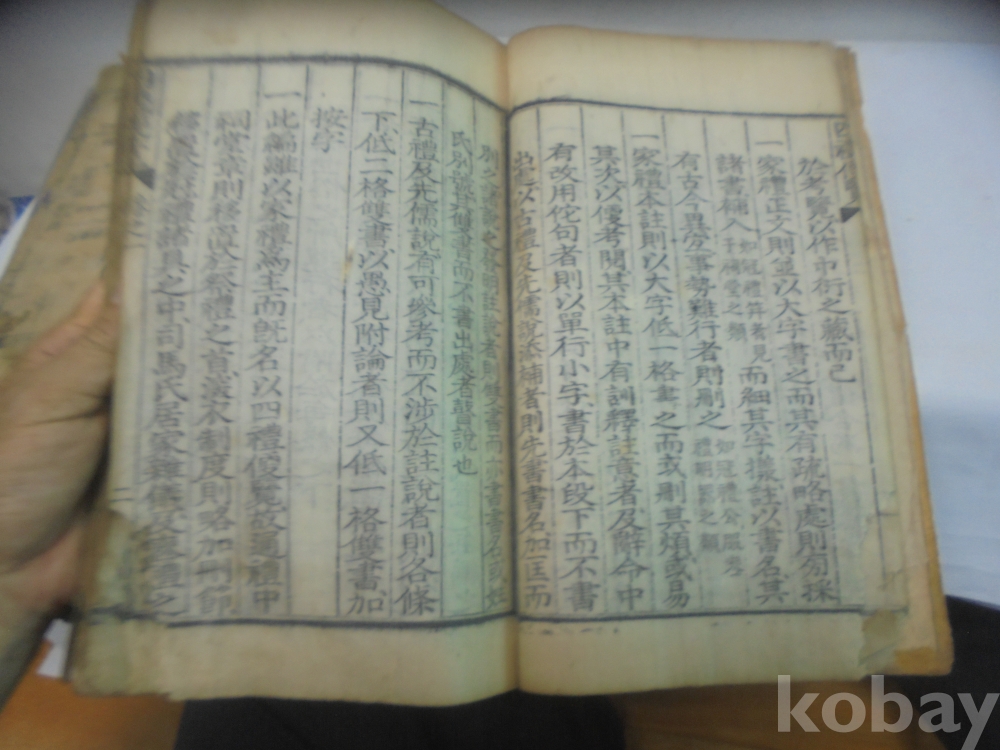 於考覽以作巾衍之藏而已
一家禮正文則並以大字書之而其有疏略處則旁採
諸書補入如冠禮筓者見于祠堂之類而細其字樣註以書名其
有古今異宜事勢難行者則刪之
一家禮本註則以大字低一格書之而或刪其煩或易
其次以便考閱其本註中有訓釋註意者及辭令中
有改用佗句者則以單行小字書於本段下而不書
以古禮及先儒說添補者則先書書名加匡而
氏別 雙書而不書出處者 說也
一古禮及先儒說有可參考而不涉於註說者則各條
下低二格雙書以愚見附論者則又低一格雙書加
按字
一此編雖以家禮爲主而旣名以四禮便覽故通禮中
祠堂章則移置於祭禮之首深衣制度則略加刪節
禮諸具之中司馬氏居家雜儀 之
二
kobay